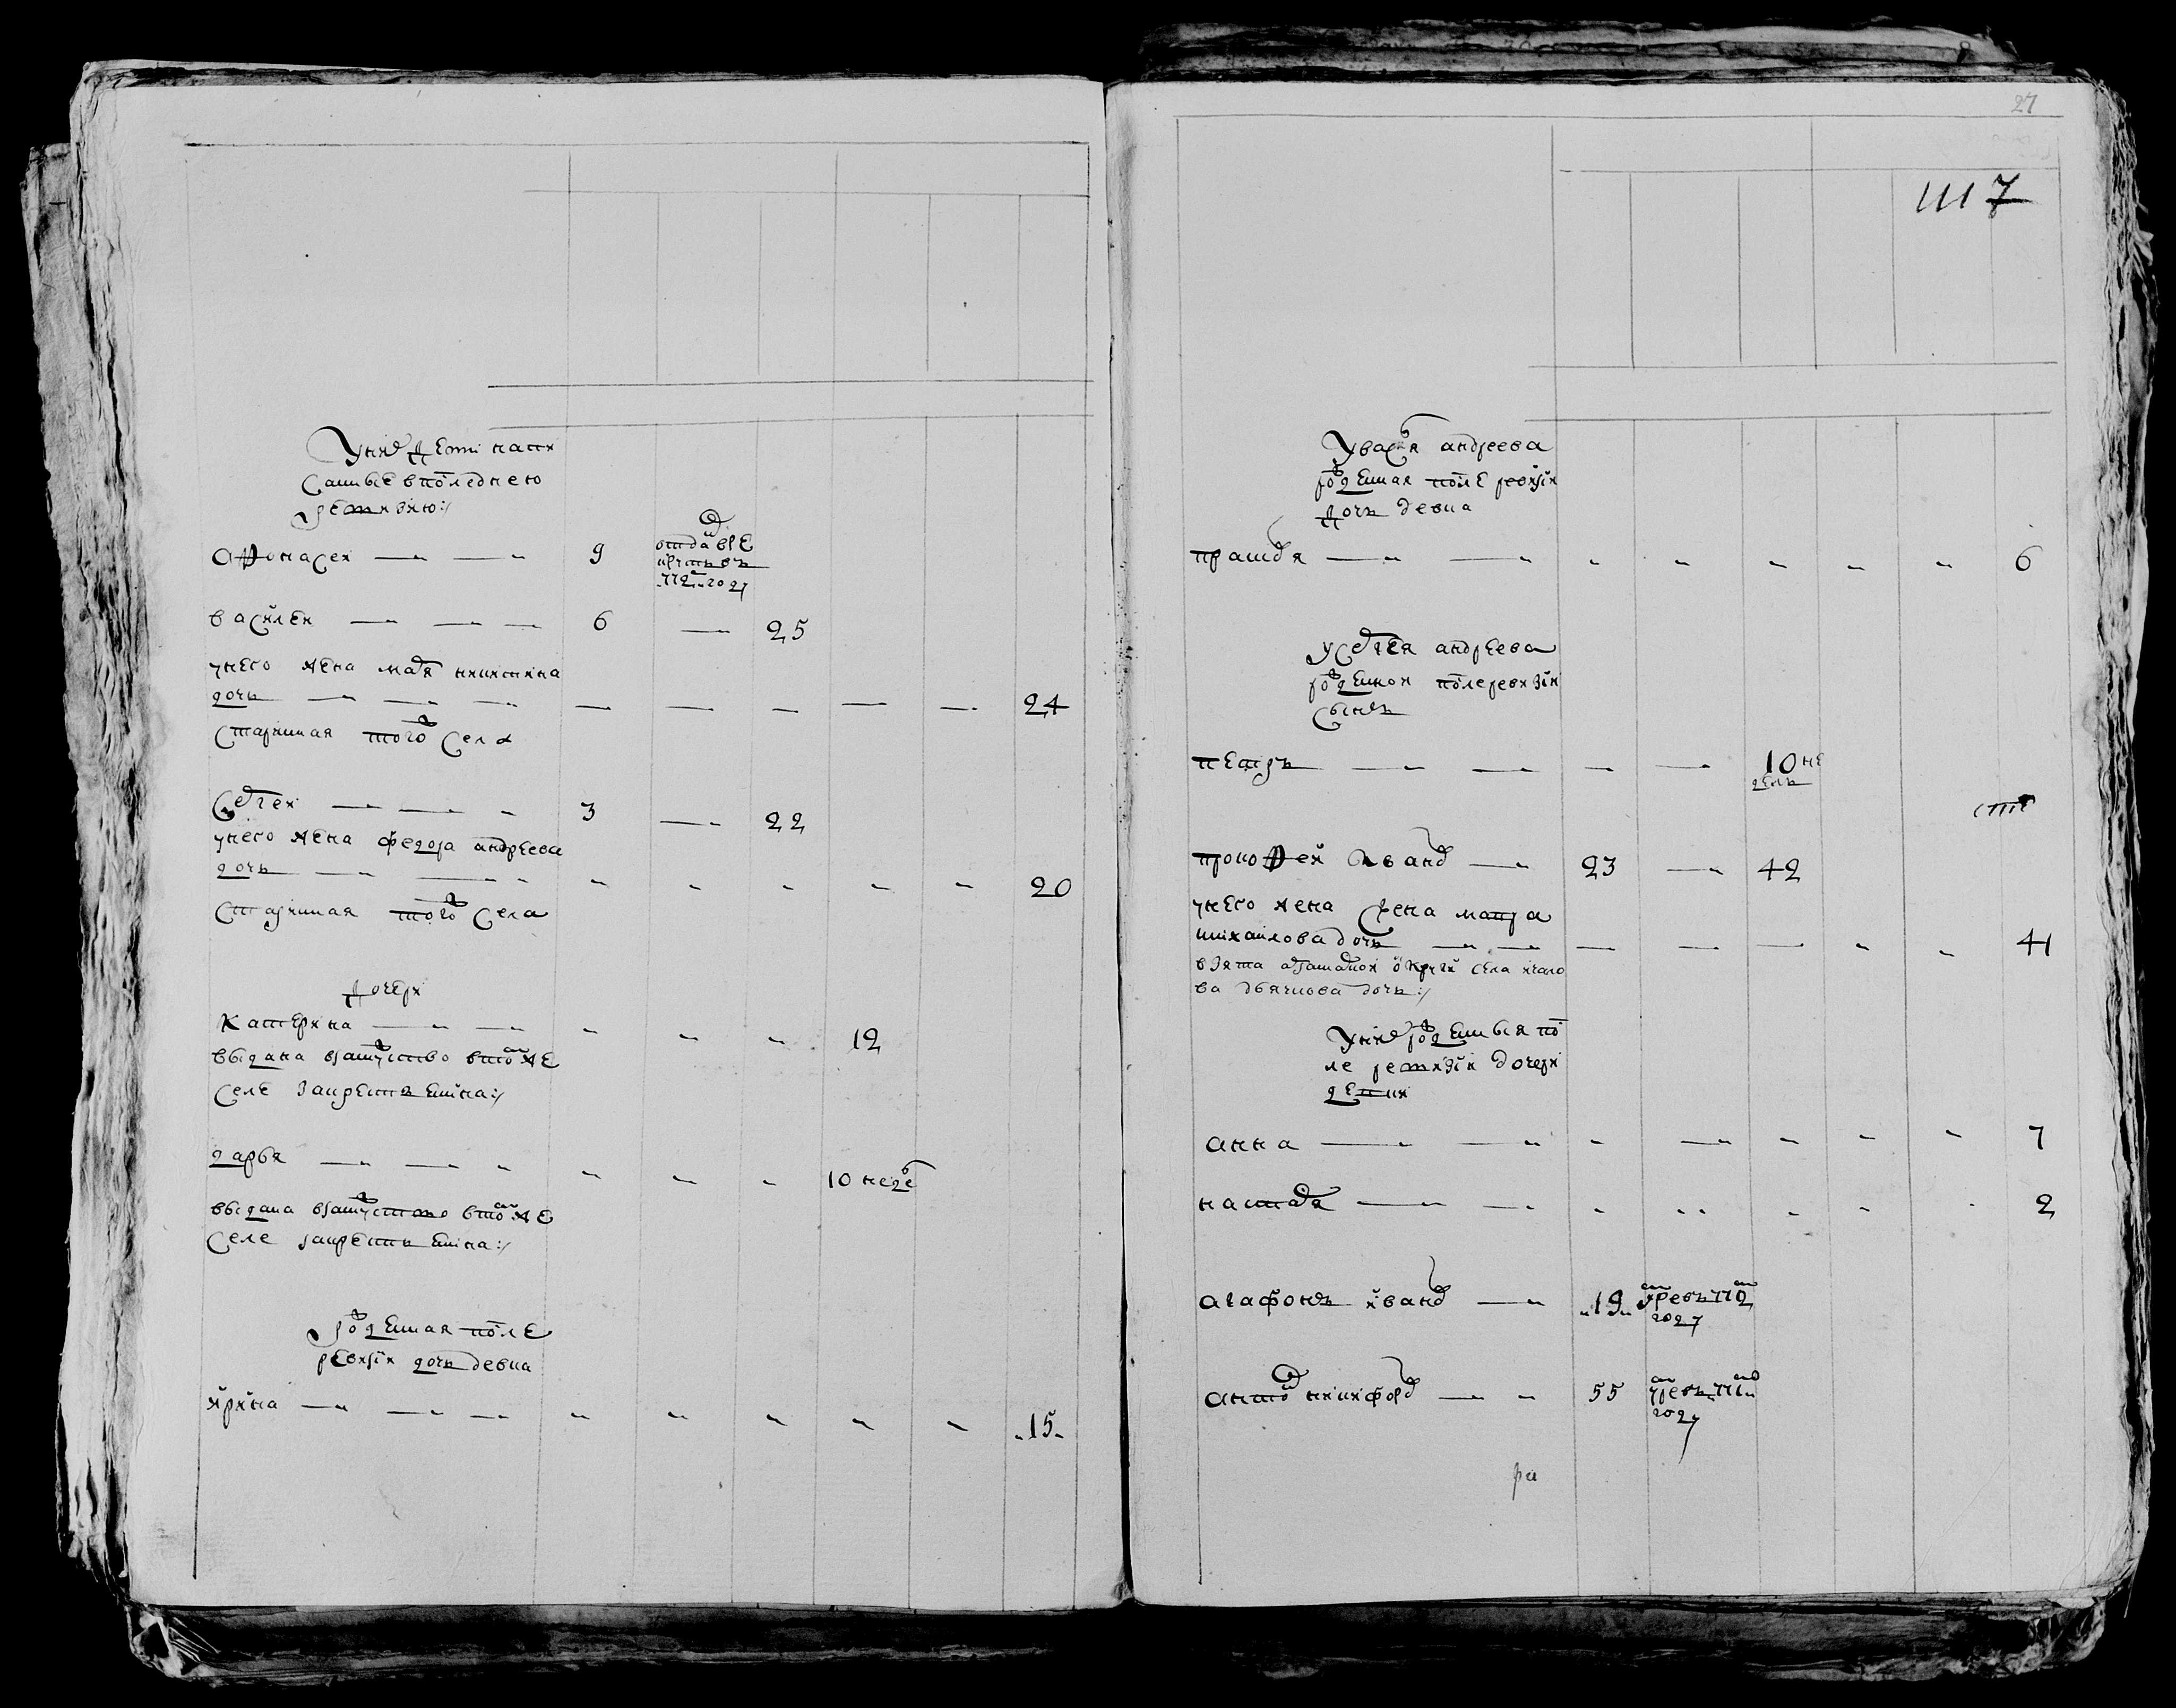 У них дети напи
санные в последнею
ревизию:/
Афонасей 9 отдан в ре
круты в
772 году
василей 6 25
у него жена марья никитина
дочь 24
старинная того села
Сергей 3 22
у него жена федора андреева
дочь 20
старинная того села
Дочери
Катерина 12
выдана в замужство в том же
селе за крестьенина:/
дарья 10 недель
выдана в замужство в том же
селе за крестьенина:/
рожденная после
ревизии дочь девка
ирина 15
27
1117
У василья андреева
рожденная после ревизии
дочь девка
прасковья 6
У сергея андреева
рожденной после ревизии
сынъ
петръ 10 не
дель
прокофей иванов 23 42
у него жена
михаилова дочь 41
взята
ва дьячкова дочь:/
У них рожденныя по
сле ревизии дочери
девки
анна 7
настасья 2
агафонъ иванов 19 умре въ 77
году
антон никифоров 55 умре въ 77
году